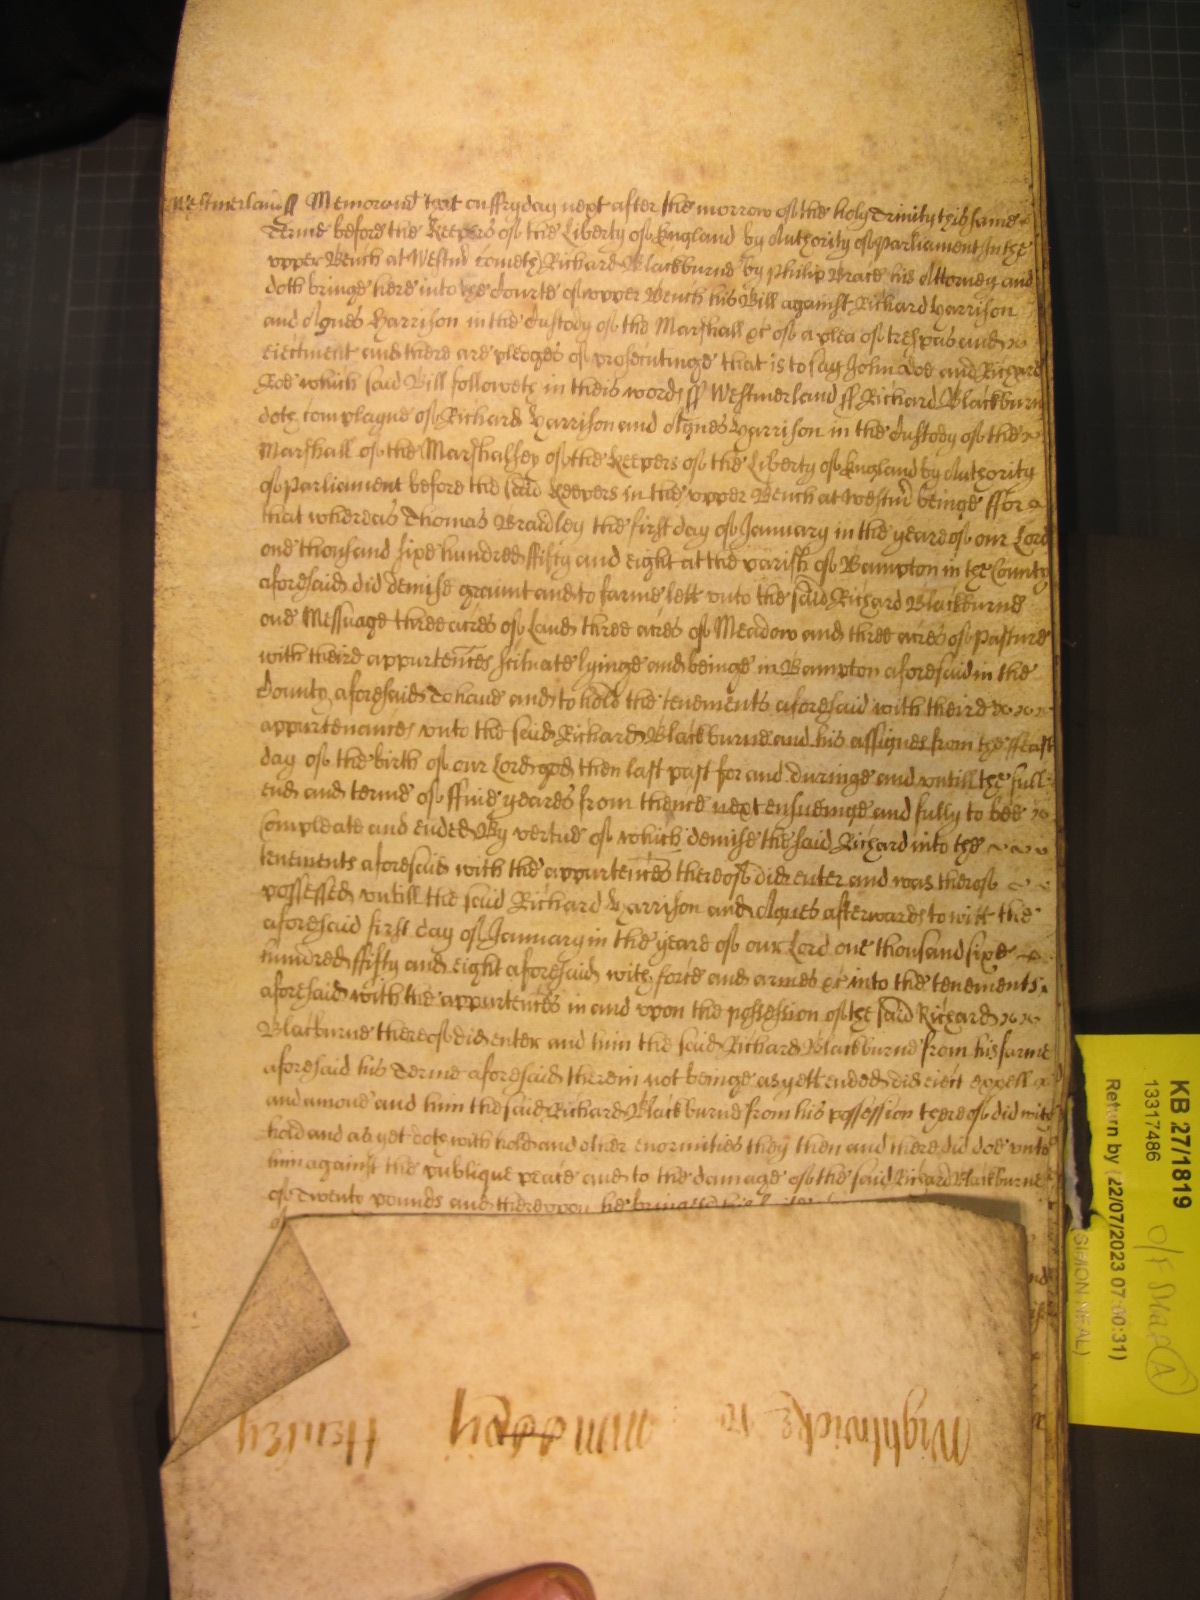 Westmerland ss Memorand that on ffryday next after the morrow of the holy Trinity this same
Terme before the Keepers of the Liberty of England by Authority of Parliament In the
upper Bench at Westm̃ cometh Richard Blackburne by Philip Brace his Attorney and
doth bringe here into the Courte of upper Bench his Bill against Richard Harrison
and Agnes Harrison in the Custody of the Marshall &c of a plea of trespas and
eiectment and there are pledges of prosecutinge that is to say John Doe and Richard
Roe which said Bill followeth in theis words ss Westmerland ss Richard Blackburn
doth complayne of Richard Harrison and Agnes Harrison in the Custody of the
Marshall of the Marshalsey of the Keepers of the Liberty of England by Authority
of Parliament before the said Keepers in the upper Bench at Westm̃ beinge ffor
that whereas Thomas Bradley the first day of January in the yeare of our Lord
one thousand sixe hundred ffifty and eight at the parish of Bampton in the County
aforesaid did demise graunt and to farme lett unto the said Richard Blackburne
one Messuage three acres of Land three acres of Meadow and three acres of Pasture
with theire appurteñces scituate lyinge and beinge in Bampton aforesaid in the
County aforesaid To have and to hold the tenements aforesaid with theire
appurtenances unto the said Richard Blackburne and his assignes from the ffeast
day of the birth of our Lord god then last past for and duringe and untill the full
end and terme of ffiue yeares from thence next ensueinge and fully to bee
Compleate and ended By vertue of which demise the said Richard into the
tenements aforesaid with the appurteñces thereof did enter and was thereof
possessed untill the said Richard Harrison and Agnes afterwards to witt the
aforesaid first day of January in the yeare of our Lord one thousand sixe
hundred ffifty and eight aforesaid with force and armes &c into the tenements
aforesaid with the appurteñces in and upon the possession of the said Richard
Blacburne thereof did enter and him the said Richard Blackburne from his farme
aforesaid his Terme aforesaid therein not beinge as yett ended did eiect expell
and amove and him the said Richard Blackburne from his possession thereof did with
hold and as yet doth with hold and other enormities they then and there did doe unto
him against the publique peace and to the damage of the said Richard Blackburne
of Twenty pounds and thereupon he bringeth his
Wightwicke to
Henley
KB 27/1819
13317486
Return by (22/07/2023 07:00:31)
(SIMON NEAL)
O/F
A